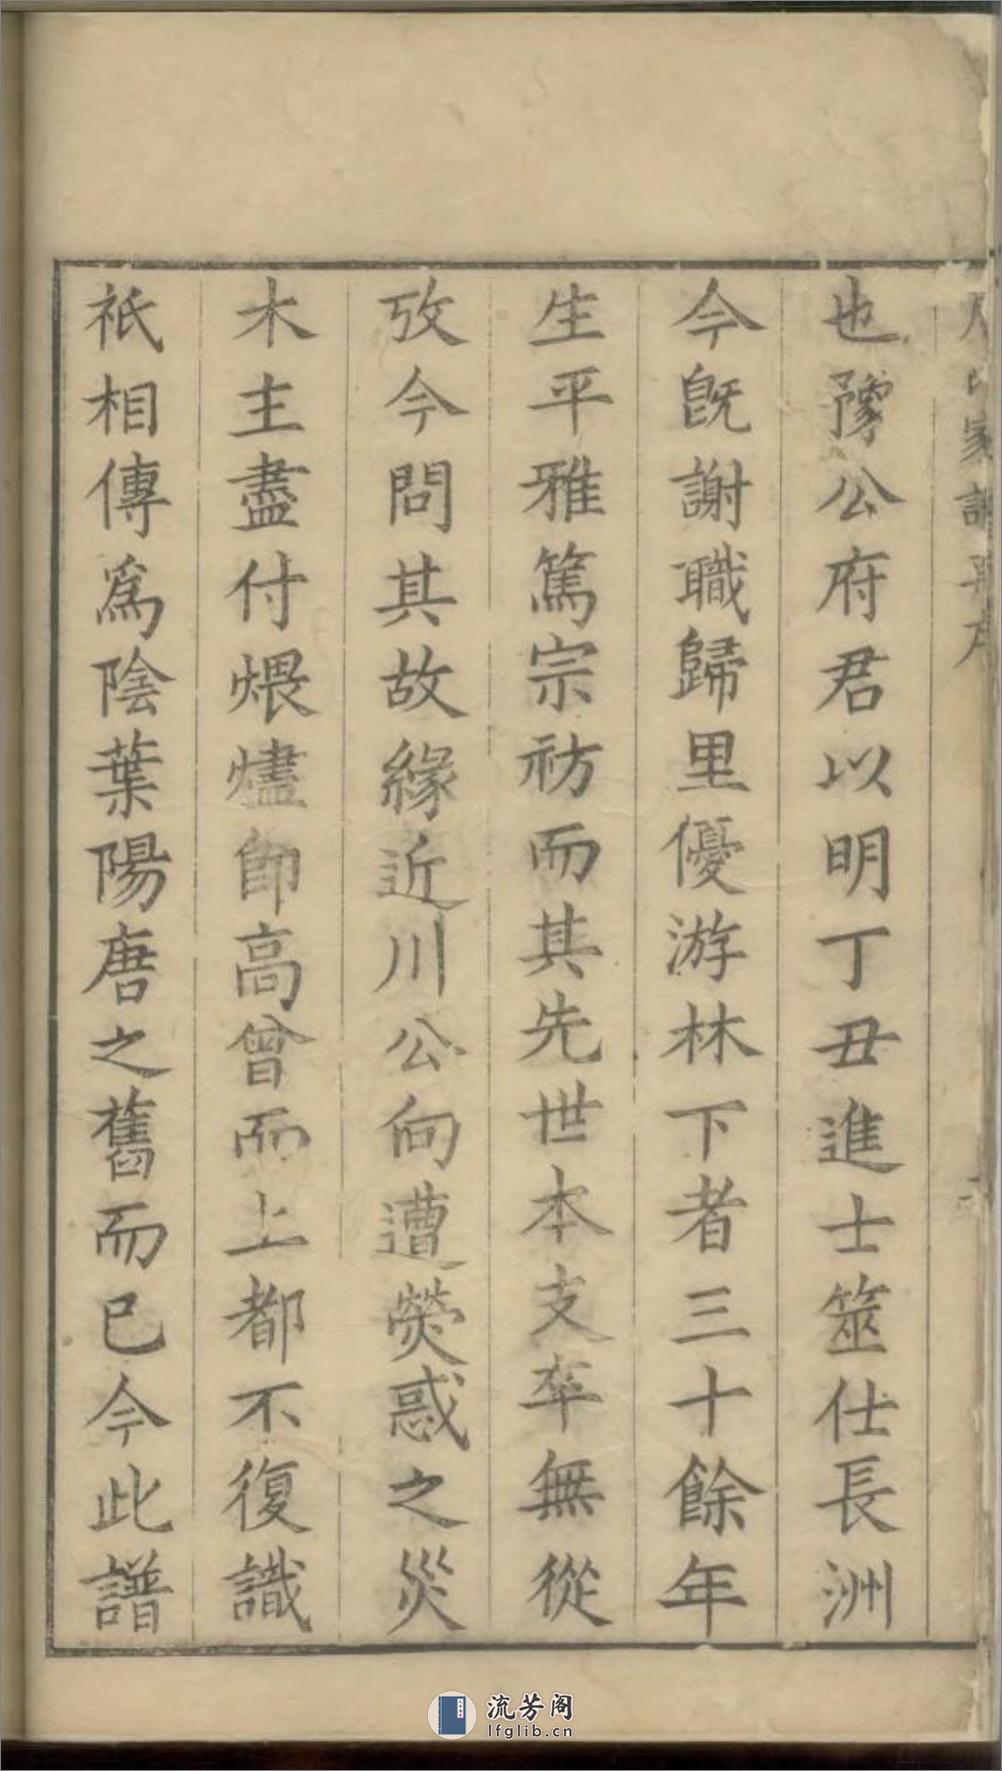 也豫公府君以明丁丑進士筮仕長洲
今旣謝職歸里優游林下者三十餘年
生平雅篤宗祊而其先世本支卒無從
攷今問其故緣近川公向遭熒惑之災
木主盡付煨燼卽高曾而上都不復識
祇相傳爲陰葉陽唐之舊而已今此譜
流芳阁
lfglib.cn